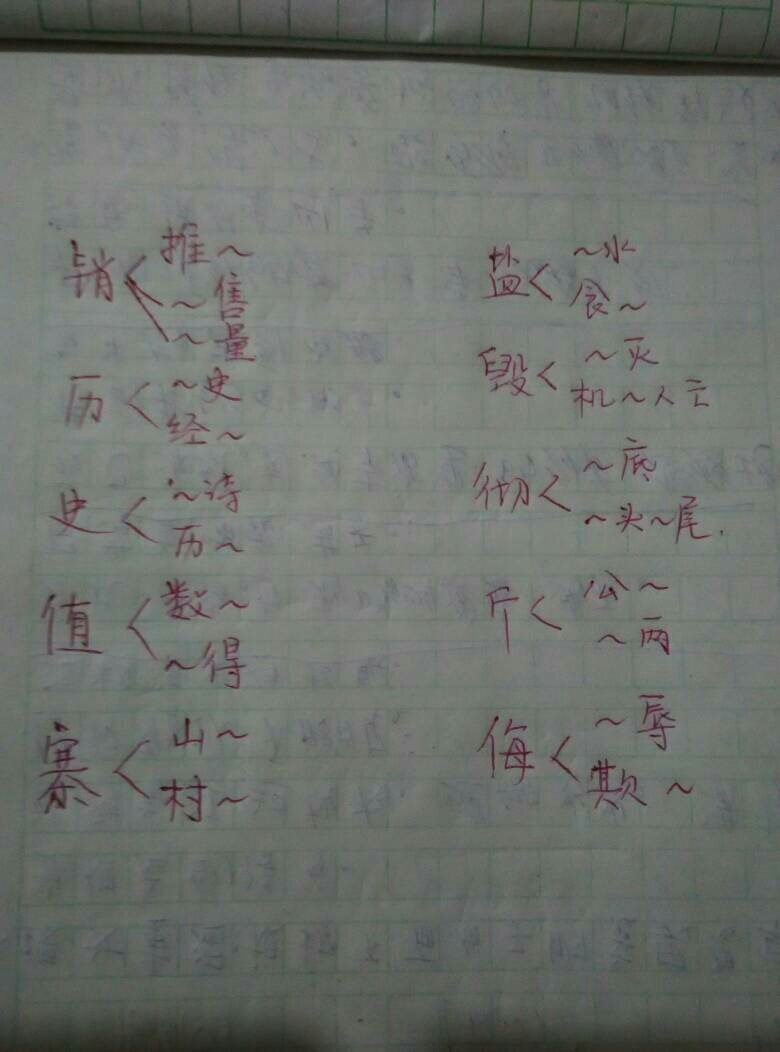 销 推～
～售
～量
历 ～史
经～
史 ～诗
历～
值 数～
～得
寨 山～
村～
盐 ～水
食～
毁 ～灭
机～人亡
彻 ～底
～头～尾.
斤 公～
～两
侮 ～辱
欺～